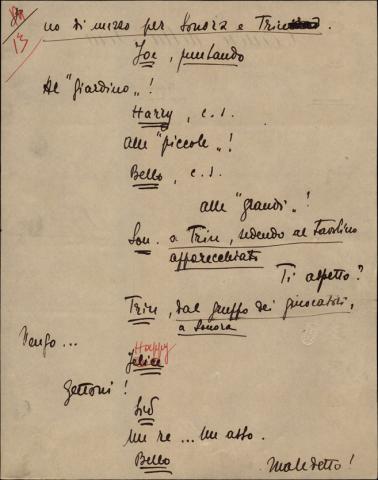 13
no di mezzo per Sonora e Trin
Joe, puntando
Al "giardino"!
Harry, c.s.
alle "piccole"!
Bello, c.s.
alle "grandi"!
Son. a Trin, sedendo al tavolino
apparecchiato
Ti aspetto?
Trin, dal gruppo dei giuocatori,
a Sonora
Vengo...
Happy
Felice
Gettoni!
Sid
Un re... Un asso.
Bello
Maledetto!